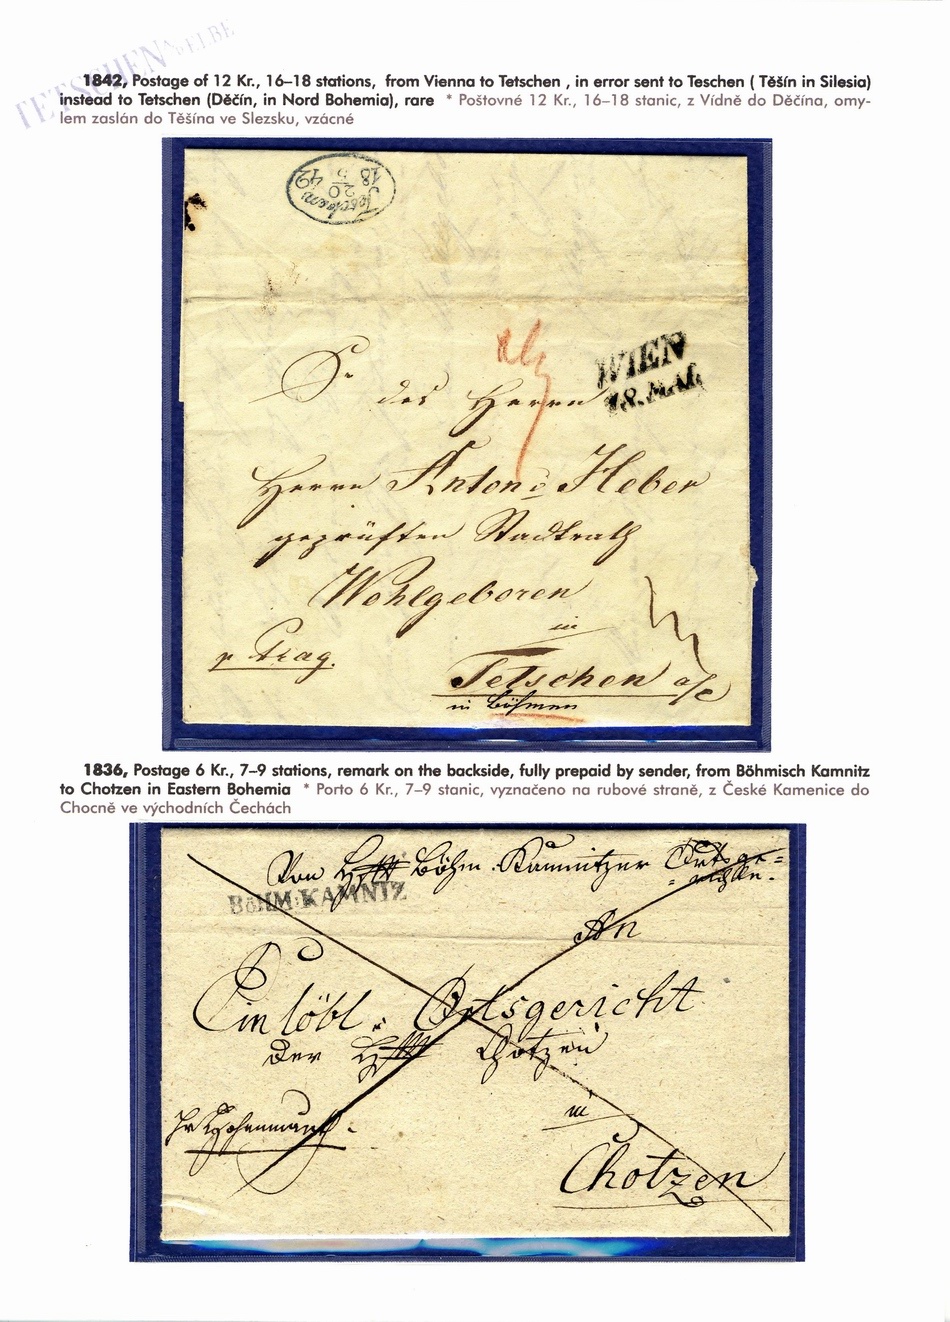 TETSCHEN A.ELBE
1842, Postage of 12 Kr., 16–18 stations, from Vienna to Tetschen , in error sent to Teschen ( Těšín in Silesia)
instead to Tetschen (Děčín, in Nord Bohemia), rare * Poštovné 12 Kr., 16–18 stanic, z Vídně do Děčína, omy-
lem zaslán do Těšína ve Slezsku, vzácné
Teschen
20
5
18 42
WIEN
18. MAI.
Sr
des Herrn
Herrn Anton Heber
geprüften Stadtrath
Wohlgeboren
in
p Prag.
Tetschen a/e
in Böhmen
1836, Postage 6 Kr., 7–9 stations, remark on the backside, fully prepaid by sender, from Böhmisch Kamnitz
to Chotzen in Eastern Bohemia * Porto 6 Kr., 7–9 stanic, vyznačeno na rubové straně, z České Kamenice do
Chocně ve východních Čechách
Von Hfft Böhm. Kamnitzer Ortsge=
=richte.
BÖHM:KAMNIZ
An
Ein löbl. Ortsgericht
der Hfft Chotzen
in
pr Hohenmauth.
Chotzen